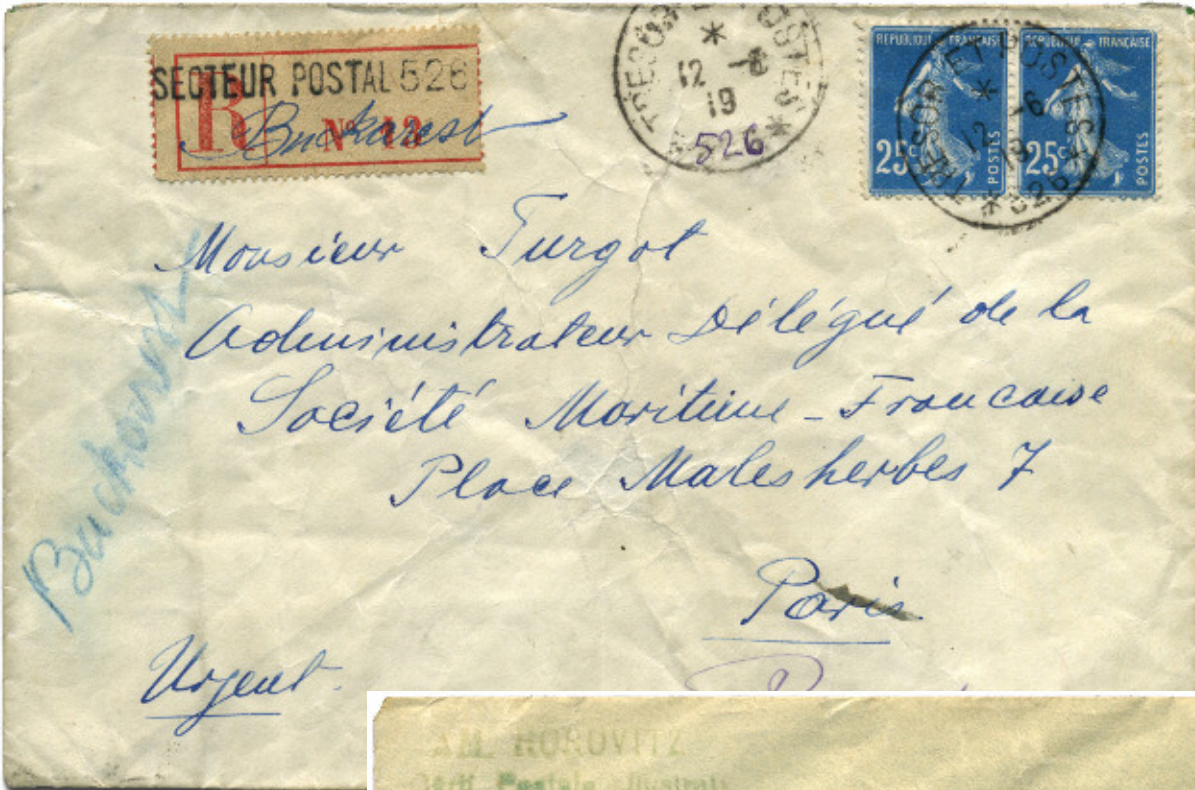 SECTEUR POSTAL 526
R Nº 13
Bukarest
TRESOR ET POSTES
12 -6
19
526
REPUBLIQUE FRANÇAISE
25c POSTES
REPUBLIQUE FRANÇAISE
25c POSTES
TRESOR ET POSTES
12 -6
19
526
Monsieur Turgot
Administrateur Délégué de la
Société Maritime - Francaise
Place Malesherbes 7
Paris
Urgent.
HOROVITZ